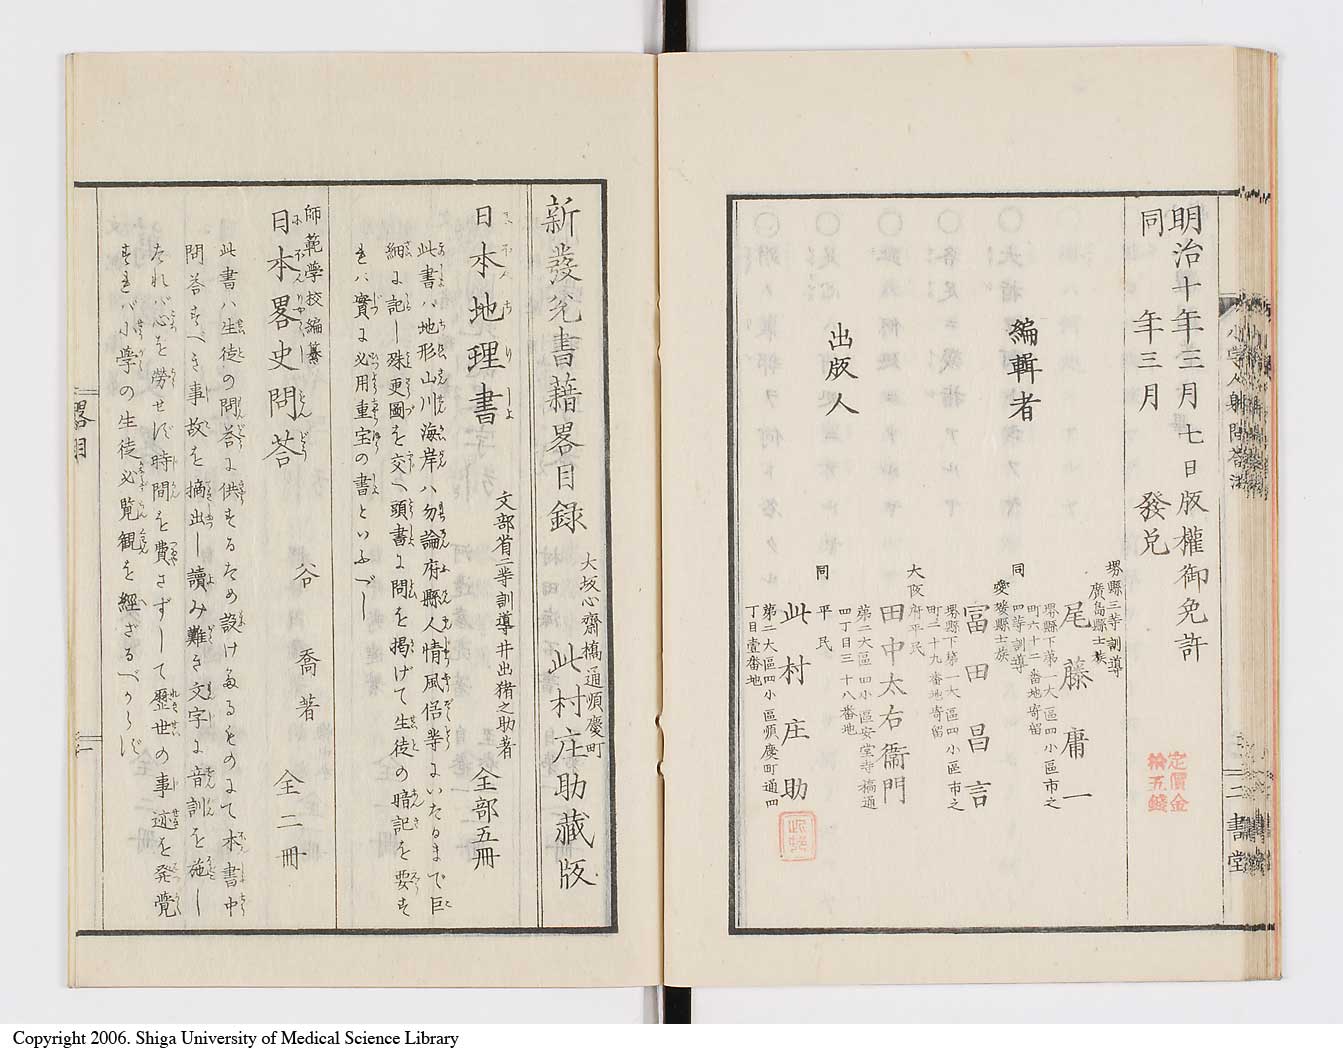 明治十年三月七日版權御免許
同　年三月　發兌
編輯者
堺縣三等訓導
廣島縣士族
尾藤庸一
堺縣下第一大區四小區市之
町六十二番地寄留
同　四等訓導
愛媛縣士族
冨田昌言
堺縣下第一大區四小區市之
町三十九番地寄留
出版人
大阪府平民
田中太右衞門
第二大區四小區安堂寺橋通
四丁目三十八番地
同　平民
此村庄助
第二大區四小區順慶町通四
丁目壹番地
定價金
拾五錢
小学人身問答
二書堂
新發兌書藉畧目録
大坂心齋橋通順慶町
此村庄助藏版
日本地理書
文部省二等訓導井出猪之助著
全部五冊
此書ハ地形山川海岸ハ勿論府縣人情風俗等にいたるまで巨
細に記し殊更圖を交へ頭書に問を掲げて生徒の暗記を要す
されハ實に必用重宝の書といふべし
師範學校編纂
日本畧史問荅
谷喬著
全二冊
此書ハ生徒の問荅に供するため設けたるものにて本書中
問荅すべき事故を摘出し讀み難き文字に音訓を施し
たれバ心を勞せず時間を費さずして歴世の事迹を発覺
すれバ小學の生徒必覧観を經ざるべからず
畧目
Copyright 2006. Shiga University of Medical Science Library